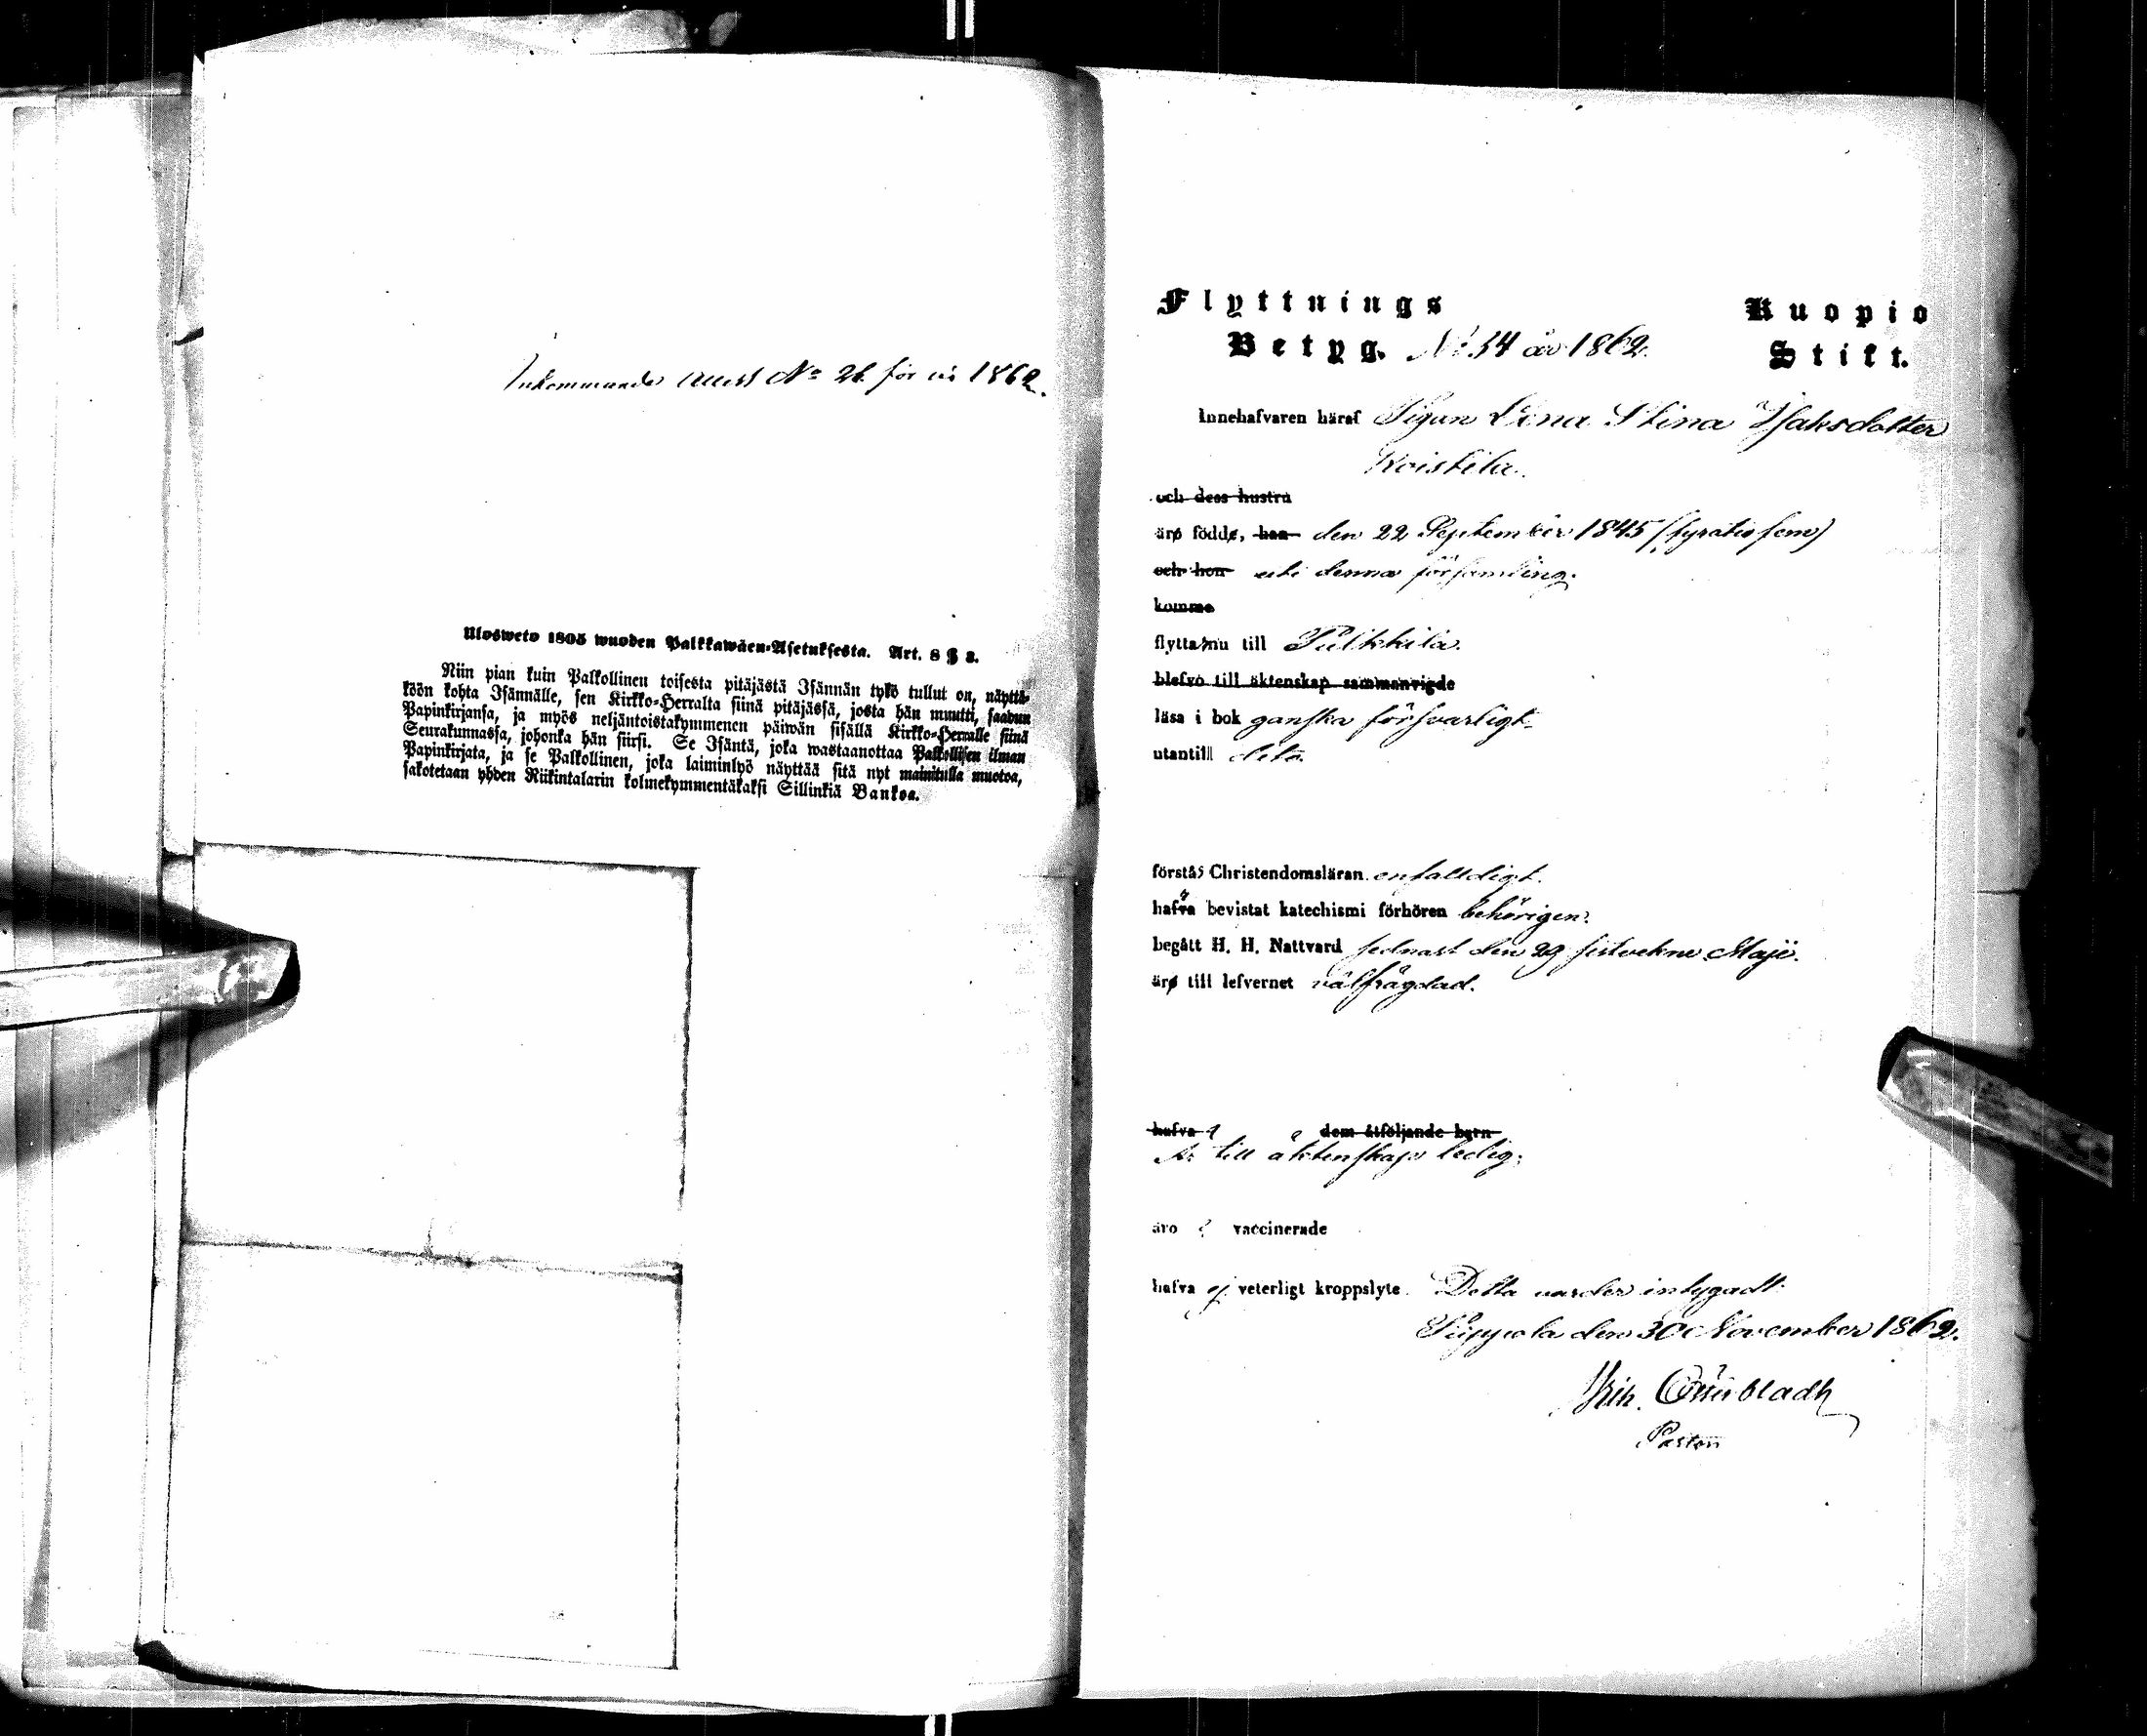 Inkommande attest No 26 för år 1862.
Ulosweto 1805 wuoden Palkkawäen-Asetuksesta. Art. 8 § 3.
Niin pian kuin Palkollinen toisesta pitäjästä Isännän tykö tullut on, näyttä-
köön kohta Isännälle, sen Kirkko-Herralta siinä pitäjässä, josta hän muutti, saadun
Papinkirjansa, ja myös neljäntoistakymmenen päiwän sisällä Kirkko-Herralle siinä
Seurakunnassa, johonka hän siirsi. Se Isäntä, joka wastaanottaa Palkollisen ilman
Papinkirjata, ja se Palkollinen, joka laiminlyö näyttää sitä nyt mainitulla muotoa,
sakotetaan yhden Riikintalarin kolmekymmentäkaksi Sillinkiä Bankoa.
Flyttnings Kuopio
Betyg. No 34 år 1862. Stift.
Innehafvaren häraf Pigan Lena Stina Isaksdotter
Koistila.
och dess hustru
äro födde, han den 22 September 1845 (fyratio fem)
och hon uti denna församling.
komme
flytta nu till Pulkkila.
blefvo till äktenskap sammanvigde
läsa i bok ganska försvarligt.
utantill dito.
förstå Christendomsläran enfaldigt.
hafva bevistat katechismi förhören behörigen.
begått H. H. Nattvard sednast den 29 sistvekne Maji.
äro till lefvernet välfrägdad.
hafva dem åtföljande barn
Är till äktenskap ledig.
äro vaccinerade
hafva ej veterligt kroppslyte. Detta varder intygadt.
Piippola den 30 November 1862.
Pastor